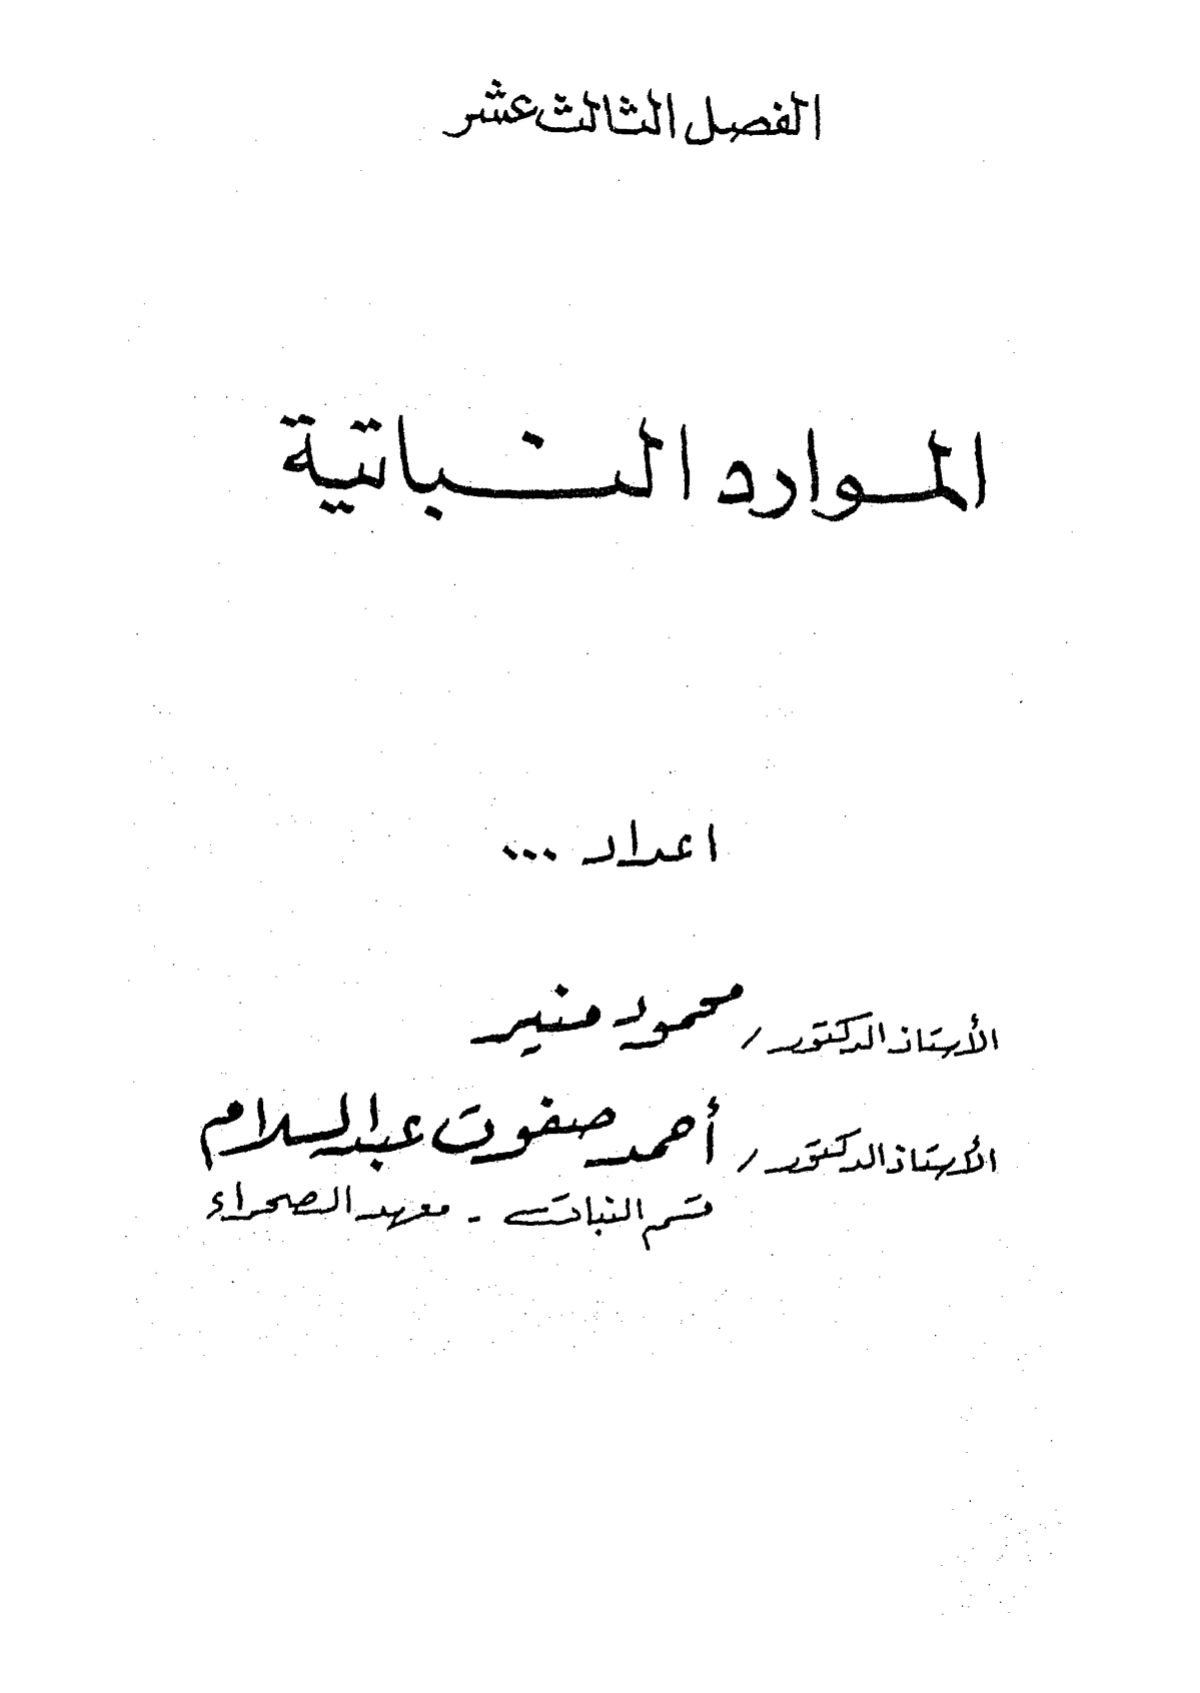 الفصل الثالث عشر
الموارد النباتية
اعداد ...
الأستاذ الدكتور / محمود منير
الأستاذ الدكتور / أحمد صفوت عبد السلام
قسم النبات - معهد الصحراء